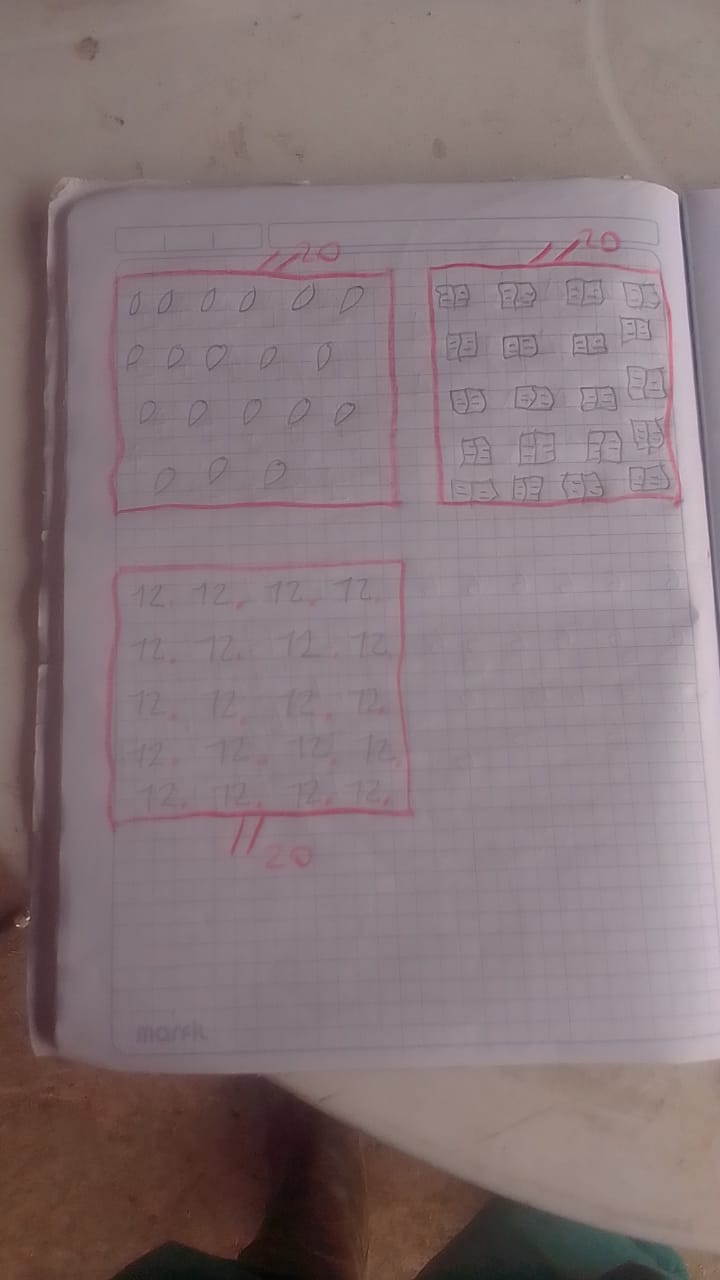 20
20
12. 12. 12. 12.
12. 12. 12. 12.
12. 12. 12. 12.
12. 12. 12. 12.
12. 12. 12. 12.
20